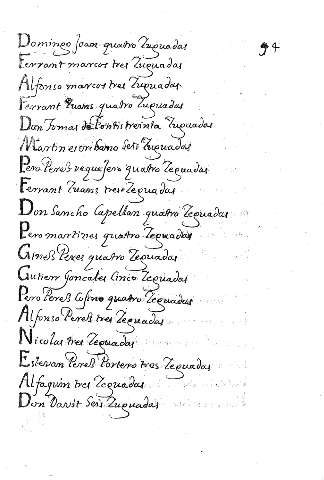 Domingo Joan quatro Zuguadas 94
Ferrant marcos tres Zuguadas
Alfonso marcos tres Zuguadas
Ferrant Yuans quatro Zuguadas
Don Tomas de Pontis treinta Zuguadas
Martin escribano Seis Zuguadas
Pero Pereß vequejero quatro Zeguadas
Ferrant Yuans tres Zeguadas
Don Sancho Capellan quatro Zeguadas
Pero martines quatro Zeguadas
Gineß Peres quatro Zeguadas
Gutierr Goncales Cinco Zeguadas
Pero Pereß quatro Zeguadas
Alfonso Pereß tres Zeguadas
Nicolas tres Zeguadas
Estevan Pereß Portero tres Zeguadas
Alfaquin tres Zeguadas
Don Davit Seis Zuguadas